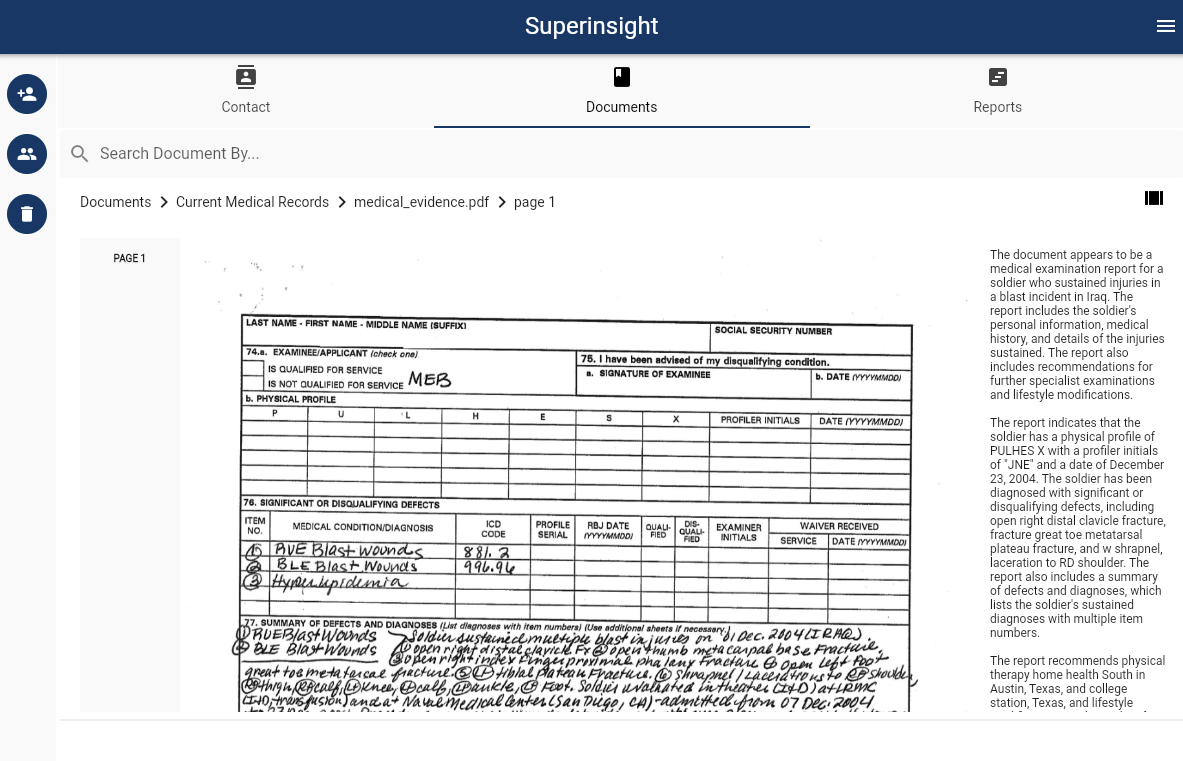 Superinsight
Contact
Documents
Reports
Search Document By...
Documents > Current Medical Records > medical_evidence.pdf > page 1
PAGE 1
LAST NAME - FIRST NAME - MIDDLE NAME (SUFFIX)
SOCIAL SECURITY NUMBER
74.a. EXAMINEE/APPLICANT (check one)
IS QUALIFIED FOR SERVICE
IS NOT QUALIFIED FOR SERVICE MEB
75. I have been advised of my disqualifying condition.
a. SIGNATURE OF EXAMINEE
b. DATE (YYYYMMDD)
b. PHYSICAL PROFILE
P U L H E S X PROFILER INITIALS DATE (YYYYMMDD)
76. SIGNIFICANT OR DISQUALIFYING DEFECTS
ITEM NO. MEDICAL CONDITION/DIAGNOSIS ICD CODE PROFILE SERIAL RBJ DATE (YYYYMMDD) QUALI-FIED DIS-QUALI-FIED EXAMINER INITIALS WAIVER RECEIVED
SERVICE DATE (YYYYMMDD)
① RUE Blast Wounds 881.2
② BLE Blast Wounds 996.96
③ Hyperlipidemia
77. SUMMARY OF DEFECTS AND DIAGNOSES (List diagnoses with item numbers) (Use additional sheets if necessary.)
① RUE Blast Wounds Soldier sustained multiple blast injuries on 01 Dec. 2004 (IRAQ).
② BLE Blast Wounds ① open right distal clavicle Fx ② open thumb metacarpal base Fracture,
③ open right index Finger proximal phalanx Fracture ④ open Left Foot
great toe metatarsal fracture. tibial plateau Fracture. ⑥ Shrapnel / Lacerations to shoulder,
thigh, calf, knee, calf, ankle, Foot. Soldier evaluated in theater (I+D) at LRMC
(I+D, transfusion) and at Naval Medical Center (San Diego, CA) - admitted from 07 Dec. 2004
The document appears to be a
medical examination report for a
soldier who sustained injuries in
a blast incident in Iraq. The
report includes the soldier's
personal information, medical
history, and details of the injuries
sustained. The report also
includes recommendations for
further specialist examinations
and lifestyle modifications.
The report indicates that the
soldier has a physical profile of
PULHES X with a profiler initials
of "JNE" and a date of December
23, 2004. The soldier has been
diagnosed with significant or
disqualifying defects, including
open right distal clavicle fracture,
fracture great toe metatarsal
plateau fracture, and w shrapnel,
laceration to RD shoulder. The
report also includes a summary
of defects and diagnoses, which
lists the soldier's sustained
diagnoses with multiple item
numbers.
The report recommends physical
therapy home health South in
Austin, Texas, and college
station, Texas, and lifestyle